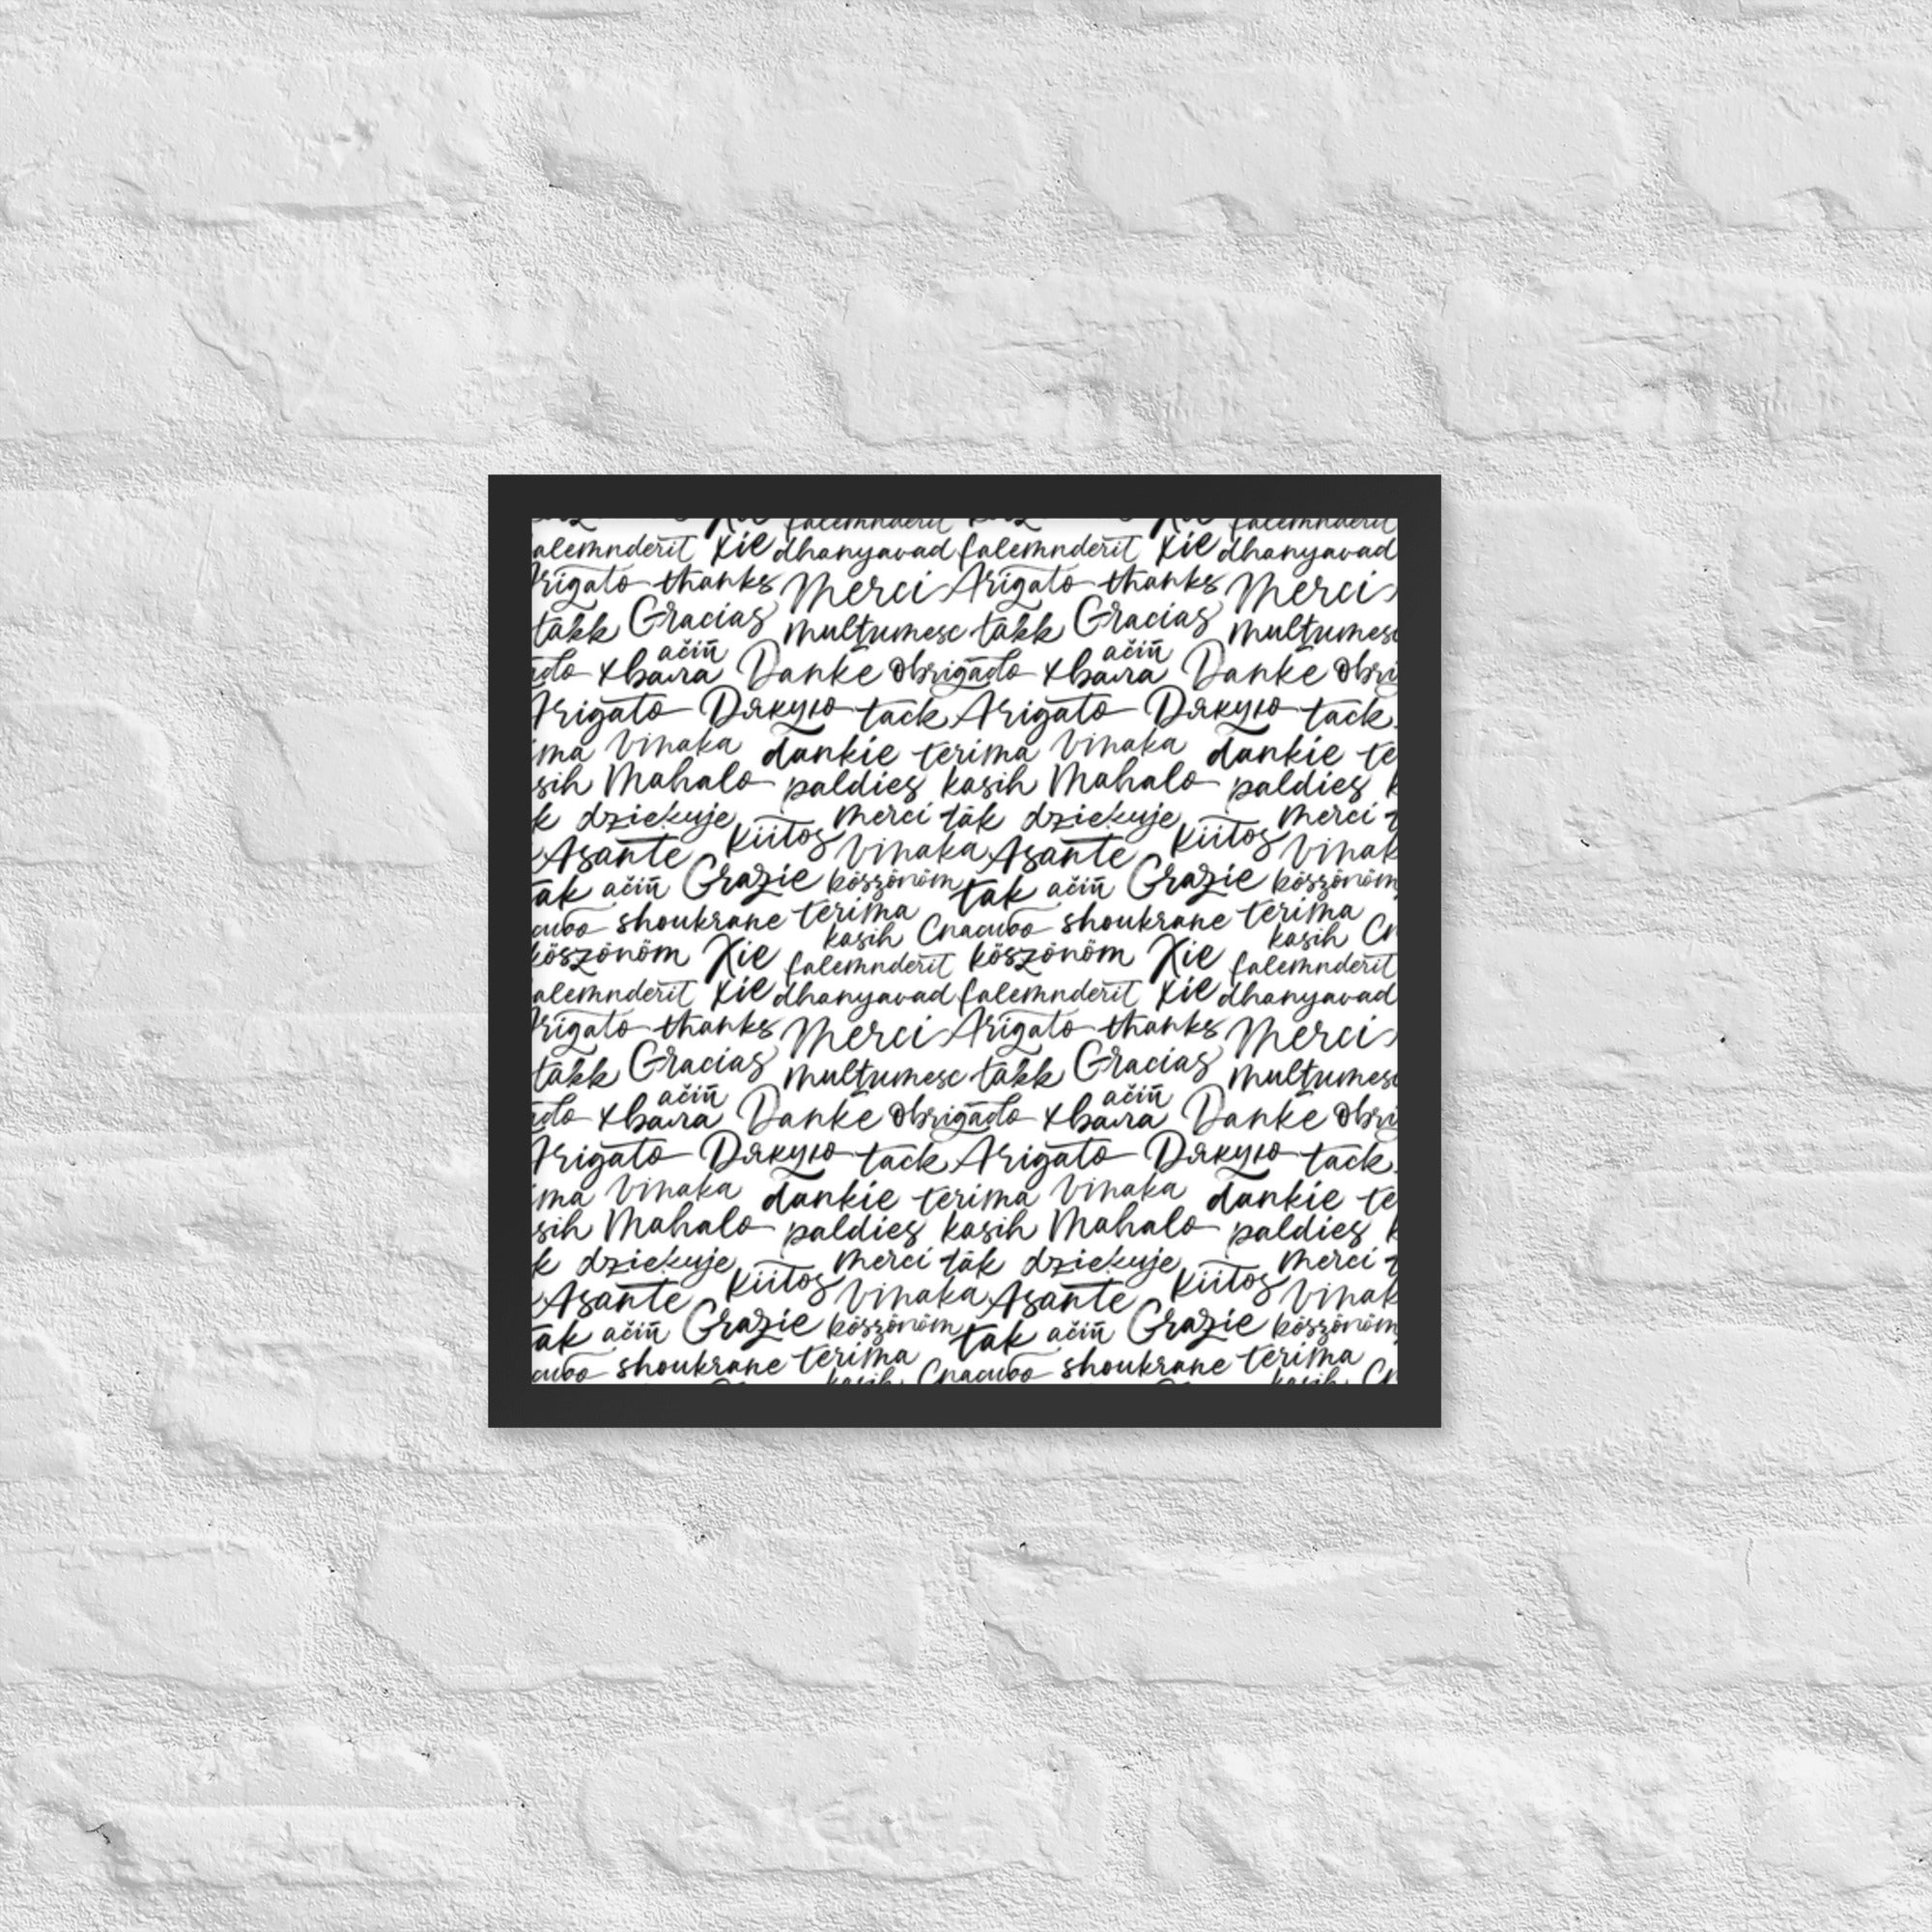 falemnderit falemnderit
alemnderit Xie dhanyavad falemnderit Xie dhanyavad
Arigato thanks Merci Arigato thanks Merci
takk Gracias multumesc takk Gracias multumesc
ačiū ačiū
ado хвала Danke Obrigado хвала Danke Obri
Arigato Дякую tack Arigato Дякую tack
ima Vinaka dankie terima Vinaka dankie te
sih Mahalo paldies kasih Mahalo paldies k
k dziekuje merci tak dziekuje merci t
Asante Kiitos Vinaka Asante Kiitos Vinak
tak ačiū Grazie köszönöm tak ačiū Grazie köszönöm
сибо shoukrane terima Спасибо shoukrane terima Сп
kasih kasih
köszönöm Xie falemnderit köszönöm Xie falemnderit
alemnderit Xie dhanyavad falemnderit Xie dhanyavad
Arigato thanks Merci Arigato thanks Merci
takk Gracias multumesc takk Gracias multumesc
ačiū ačiū
ado хвала Danke Obrigado хвала Danke Obri
Arigato Дякую tack Arigato Дякую tack
ima Vinaka dankie terima Vinaka dankie te
sih Mahalo paldies kasih Mahalo paldies k
k dziekuje merci tak dziekuje merci t
Asante Kiitos Vinaka Asante Kiitos Vinak
tak ačiū Grazie köszönöm tak ačiū Grazie köszönöm
сибо shoukrane terima Спасибо shoukrane terima Сп
kasih kasih